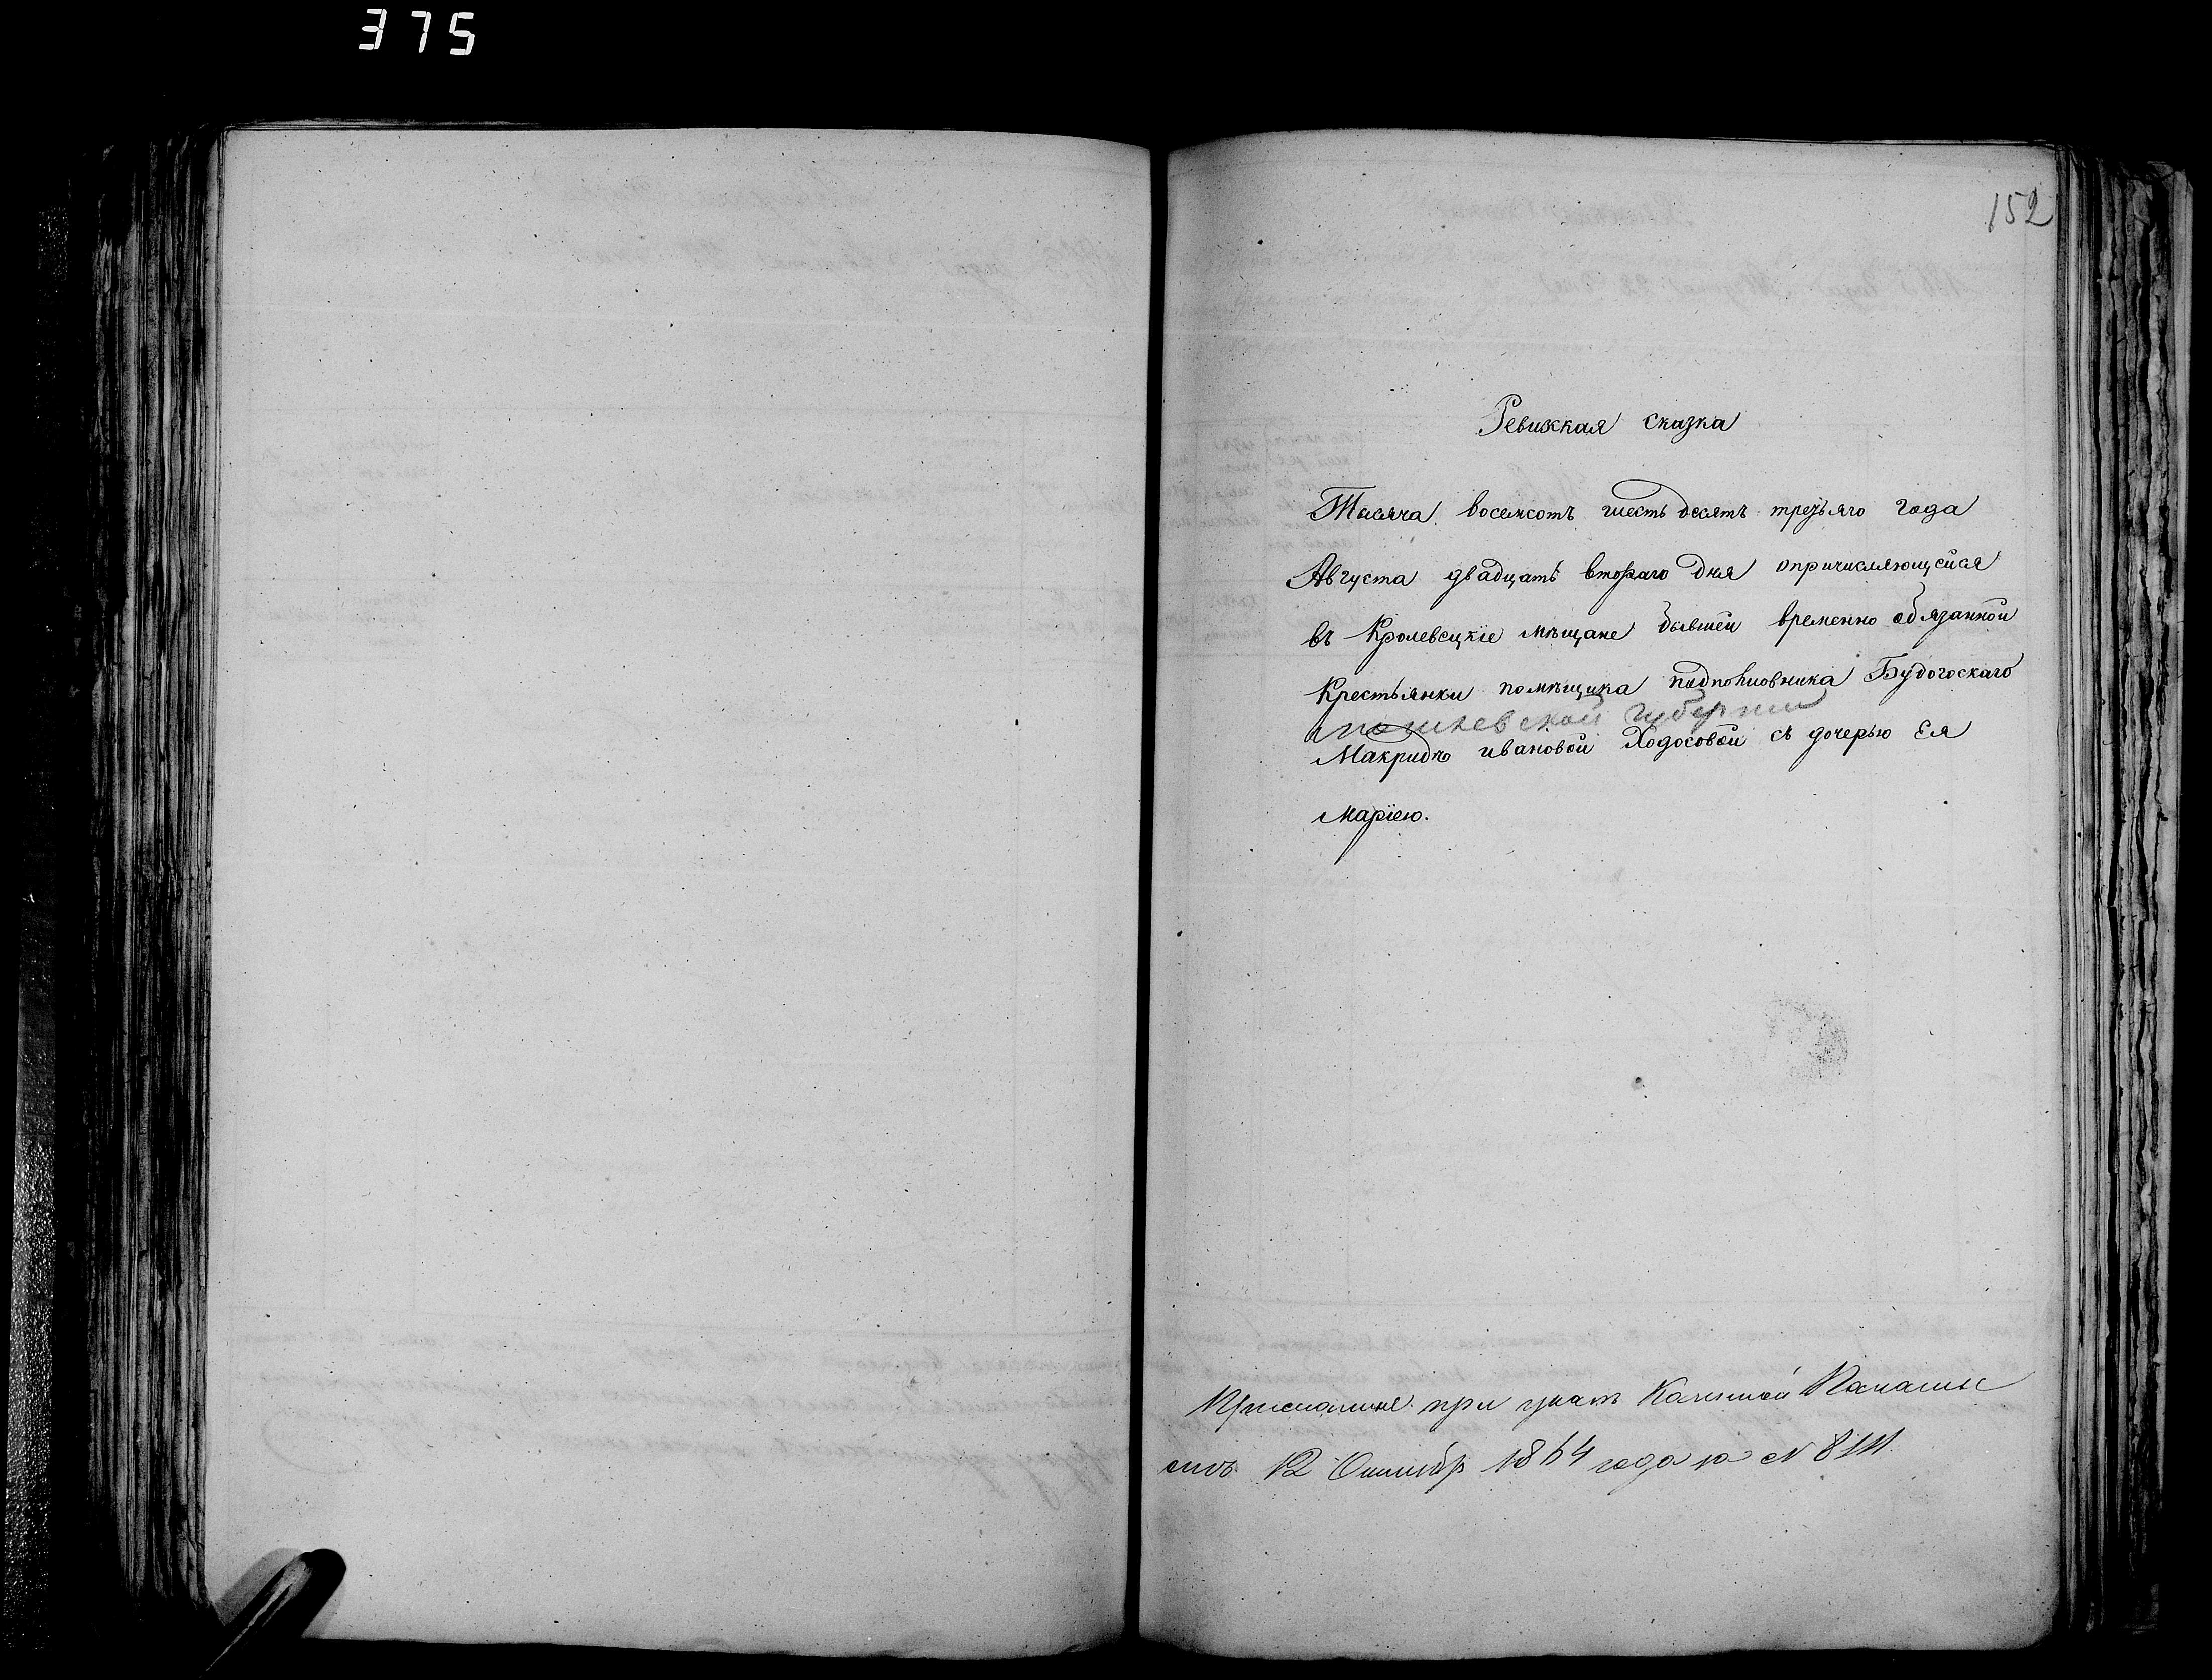 375
152
Ревизкая сказка
Тысяча восемсотъ шестьдесятъ третьяго года
Августа двадцать втораго дня опричисляющейся
въ Кролевецкіе мѣщане бывшей временно обязанной
Крестьянки помѣщика подполковника Будогоскаго
губерніи
Макридѣ ивановой Ходосовой съ дочерью Ея
Маріею.
при указѣ Казенной Палаты
отъ 12 Октября 1864 года за №